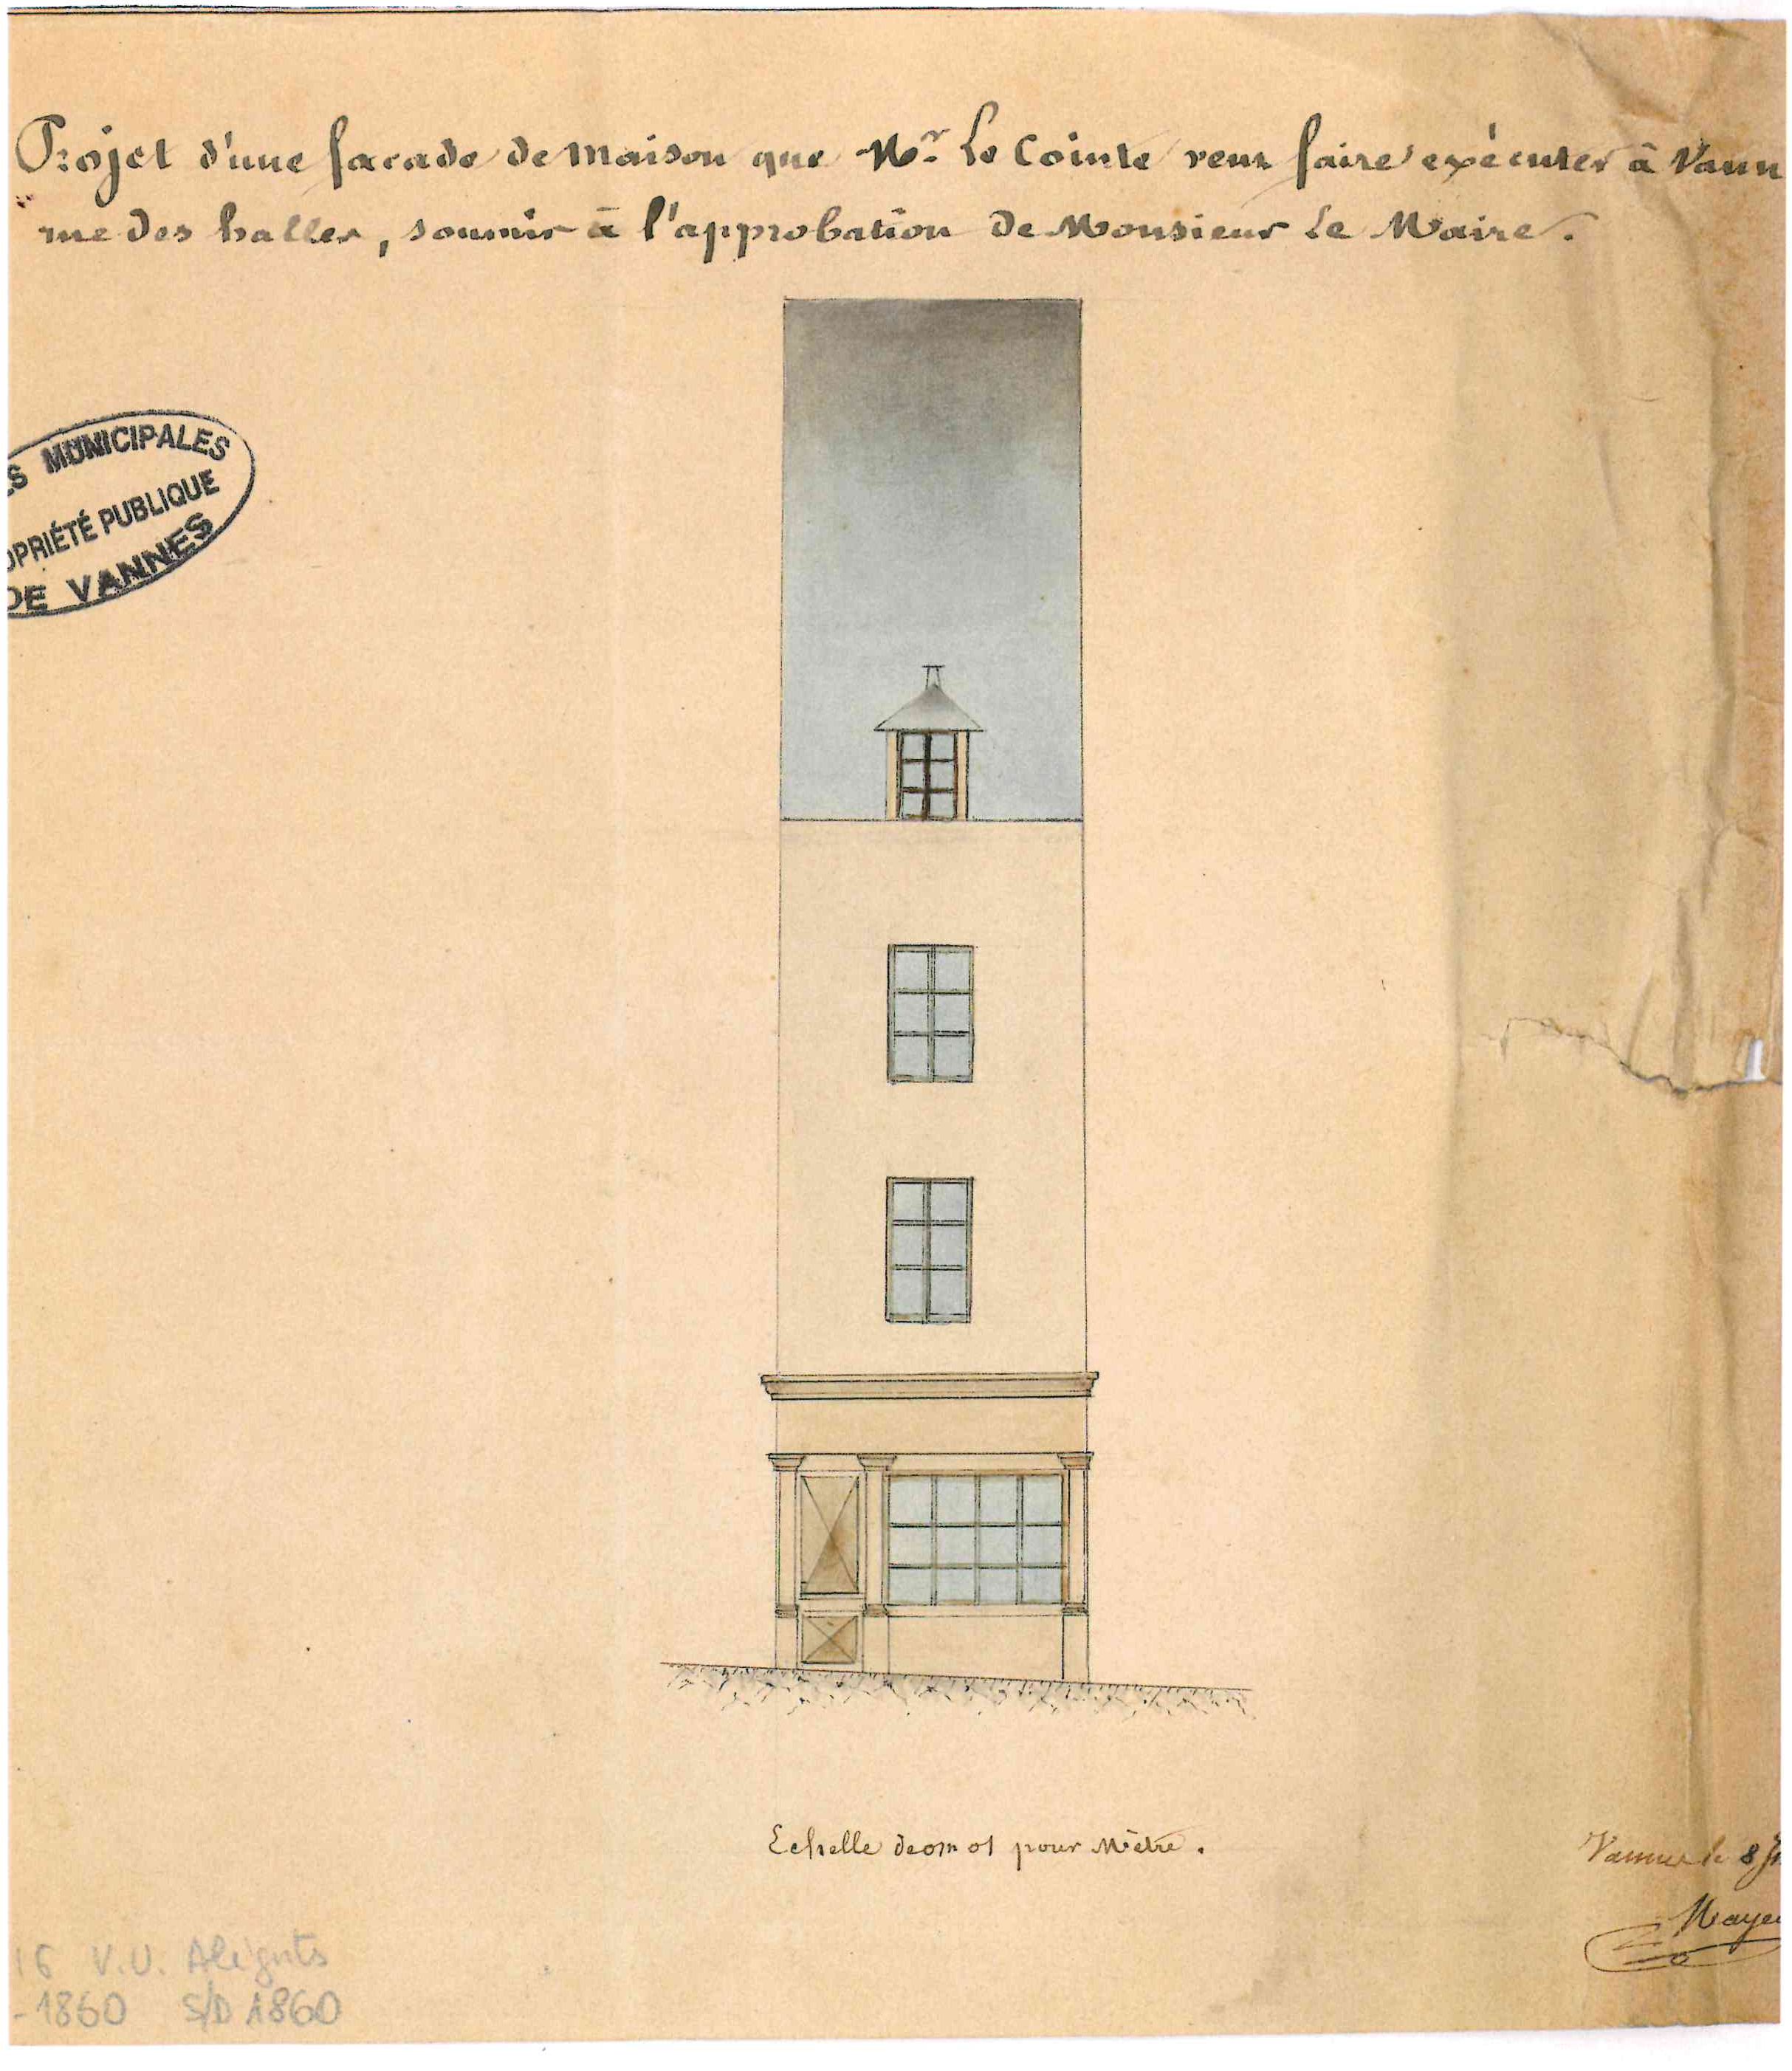 Projet d'une façade de Maison que Mr. Le Cointe veut faire exécuter à Vann
rue des halles, soumis à l'approbation de Monsieur Le Maire.
S MUNICIPALES
OPRIÉTÉ PUBLIQUE
DE VANNES
Echelle de 0m 01 pour Mètre.
Vannes le 8 J
Maye
16 V.U. Aligmts
- 1860 S/D 1860